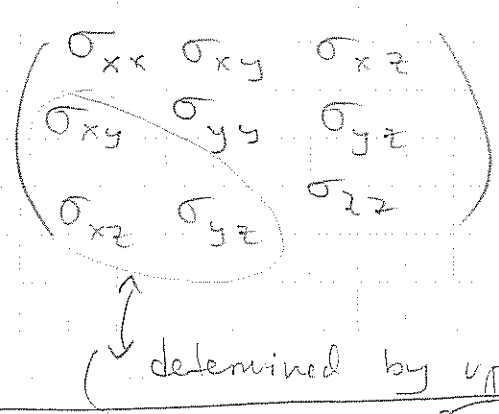 σxx σxy σxz
σxy σyy σyz
σxz σyz σzz
( determined by